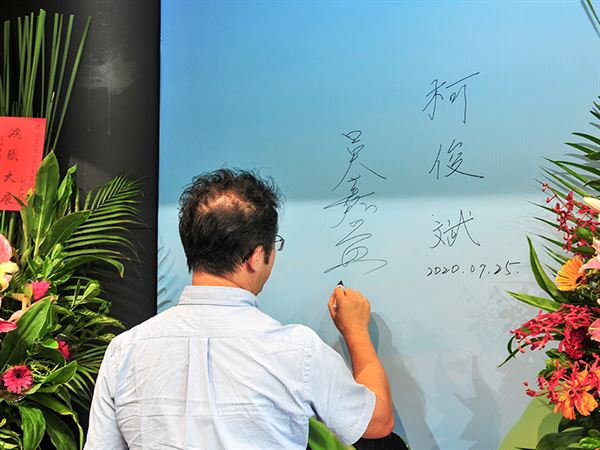 柯俊斌
2020.07.25.
吳嘉益
鴻圖大展